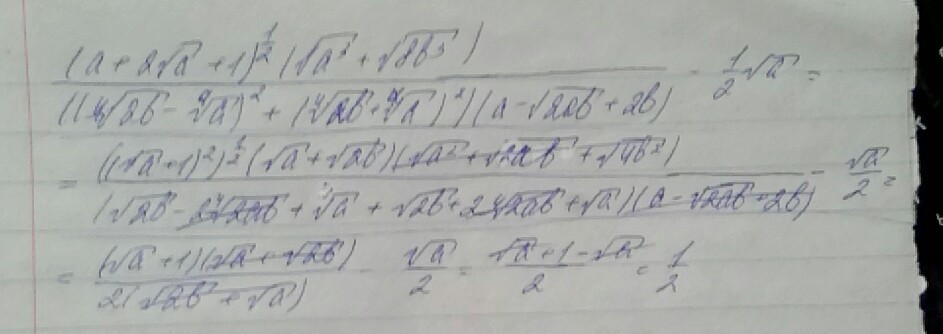 (a + 2√a + 1)^{1/2} (√a³ + √8b³) / ((⁴√2b − ⁴√a)² + (⁴√2b + ⁴√a)²)(a − √2ab + 2b) − 1/2 √a =
= ((√a + 1)²)^{1/2} (√a + √2b)(√a² + √2ab + √4b²) / (√2b − 2⁴√2ab + √a + √2b + 2⁴√2ab + √a)(a − √2ab + 2b) − √a/2 =
= (√a + 1)(√a + √2b) / 2(√2b + √a) − √a/2 = √a + 1 − √a / 2 = 1/2